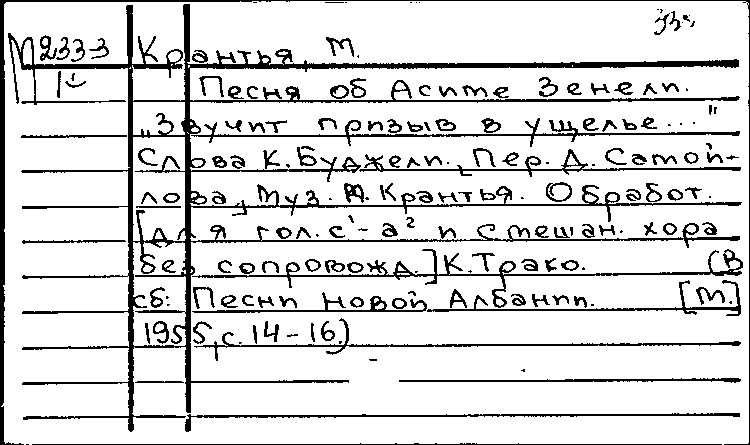 М233-3 Крантья, М.
Песня об Асиме Зенели.
„Звучит призыв в ущелье..."
Слова К. Буджели. [Пер. Д. Самой-
лова] Муз. М. Крантья. Обработ.
[для гол. c¹-a² и смешан. хора
без сопровожд.] К. Трако. (В
сб: Песни новой Албании. [М.]
1955, с. 14-16)